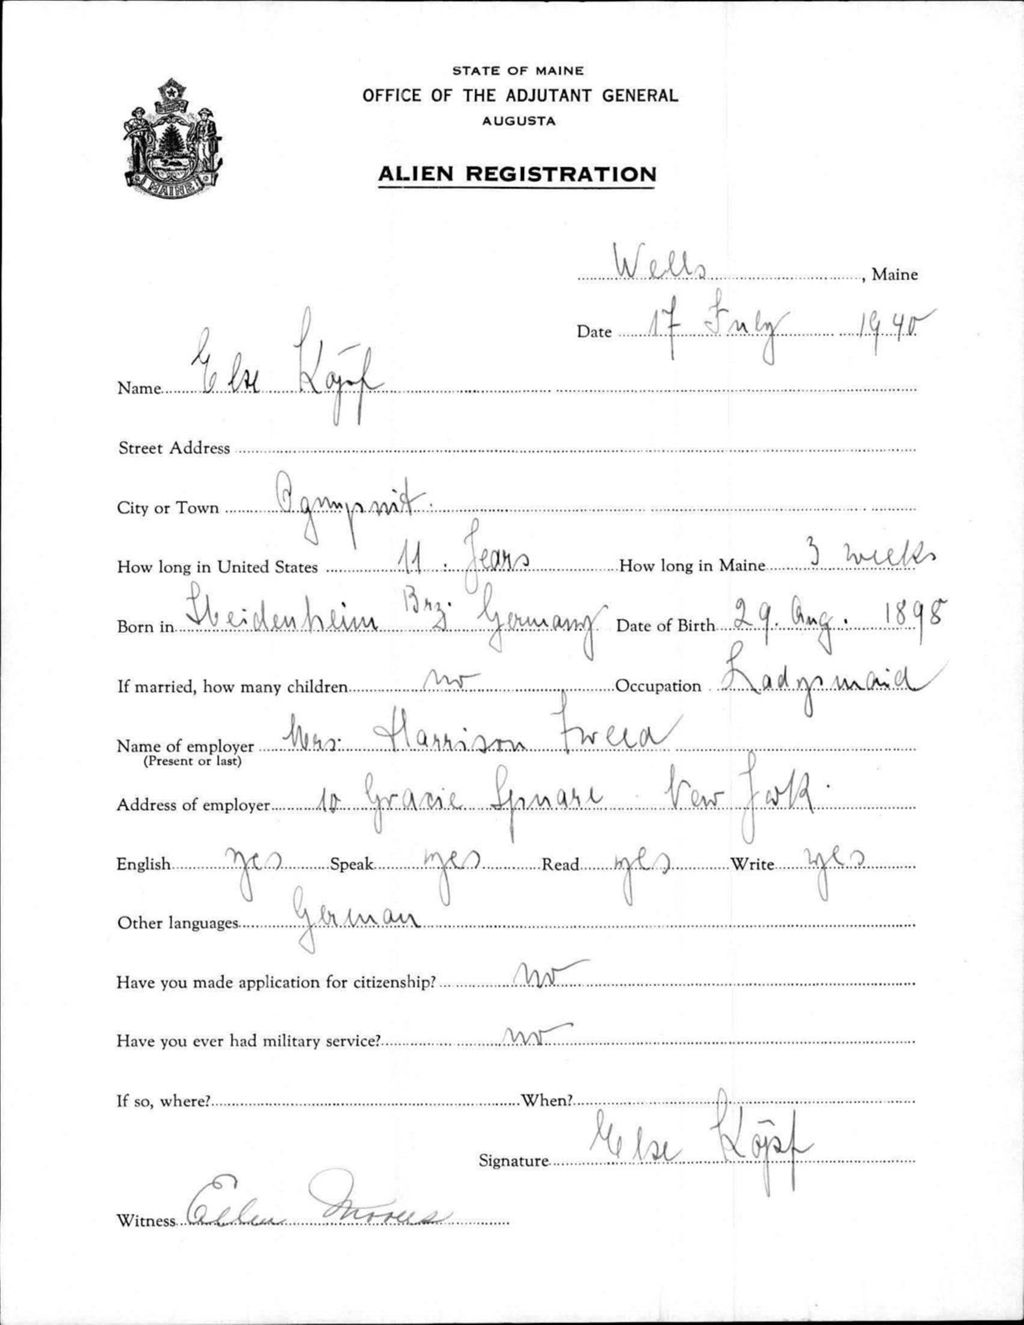 STATE OF MAINE
OFFICE OF THE ADJUTANT GENERAL
AUGUSTA
MAINE
ALIEN REGISTRATION
Wells, Maine
Date 17 July 1940
Name Else Köpf
Street Address
City or Town
How long in United States 11 Years How long in Maine 3 weeks
Born in Heidenheim Brz. Germany Date of Birth 29. Aug. 1898
If married, how many children no Occupation Ladysmaid
Name of employer Mrs. Harrison Tweed
(Present or last)
Address of employer 10 Gracie Square New York.
English yes Speak yes Read yes Write yes
Other languages German
Have you made application for citizenship? no
Have you ever had military service? no
If so, where? When?
Signature Else Köpf
Witness Ellen